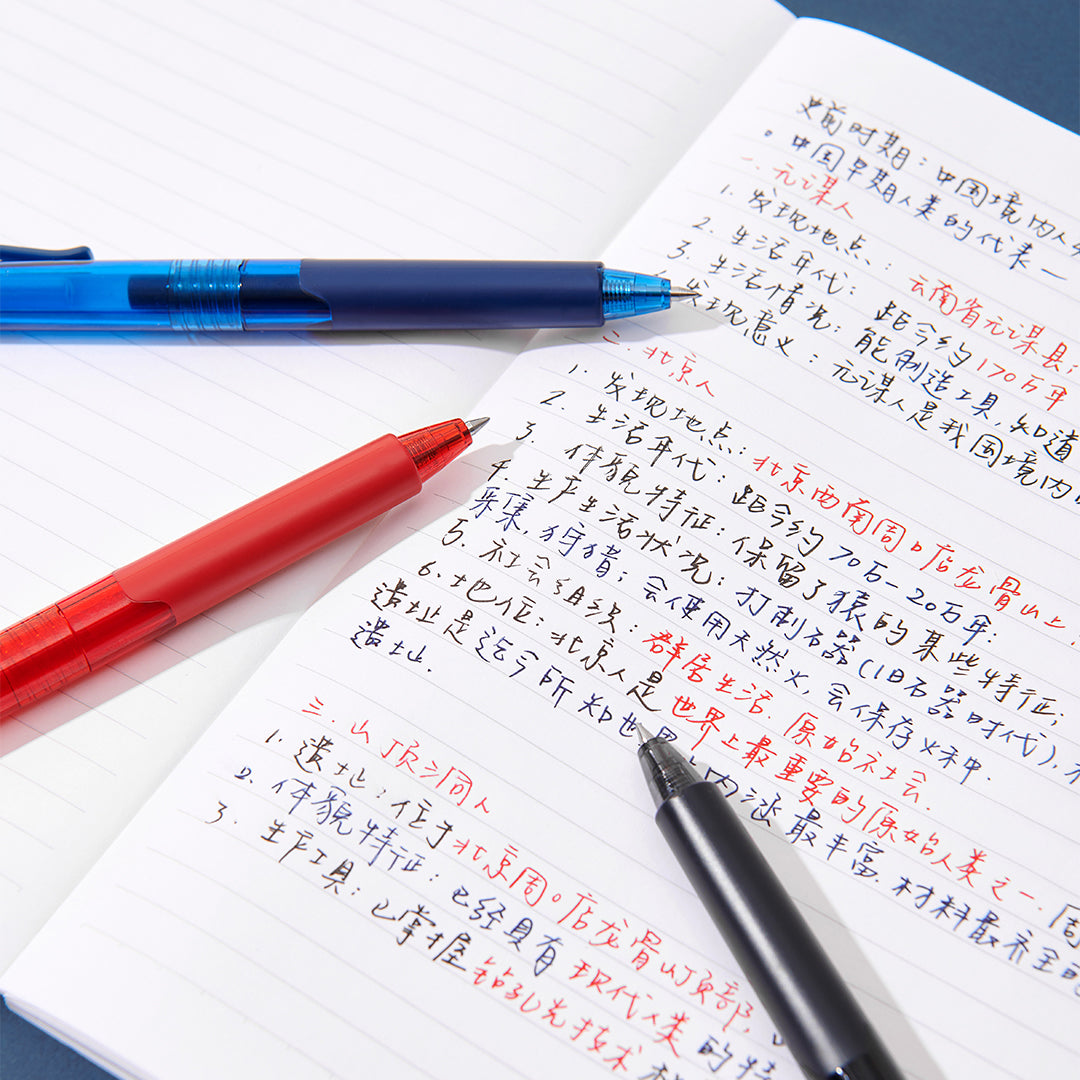 史前时期：中国境内人
。中国早期人类的代表一
一.元谋人
1.发现地点：云南省元谋县；
2.生活年代：距今约170万年
3.生活情况：能制造工具,知道
发现意义：元谋人是我国境内
二.北京人
1.发现地点：北京西南周口店龙骨山上.
2.生活年代：距今约70万-20万年；
3.体貌特征：保留了猿的某些特征；
4.生产生活状况：打制石器(旧石器时代),
采集,狩猎；会使用天然火,会保存火种.
5.社会组织：群居生活.原始社会.
6.地位：北京人是世界上最重要的原始人类之一.周
遗址是迄今所知世界 内涵最丰富.材料最齐全
遗址.
三.山顶洞人
1.遗址：位于北京周口店龙骨山顶部,
2.体貌特征：已经具有现代人类的特
3.生产工具：已掌握钻孔 技术